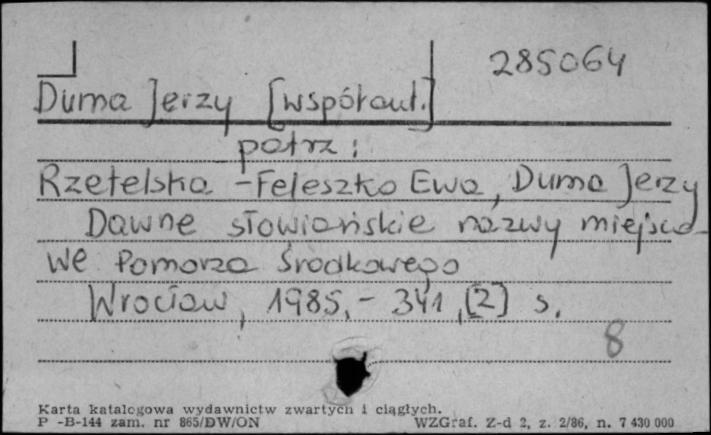 285064
Duma Jerzy [współaut.]
patrz:
Rzetelska-Feleszko Ewa, Duma Jerzy
Dawne słowiańskie nazwy miejsco-
we Pomorza Środkowego
Wrocław, 1985, - 341, [2] s.
8
Karta katalogowa wydawnictw zwartych i ciągłych.
P -B-144 zam. nr 865/DW/ON WZGraf. Z-d 2, z. 2/86, n. 7 430 000